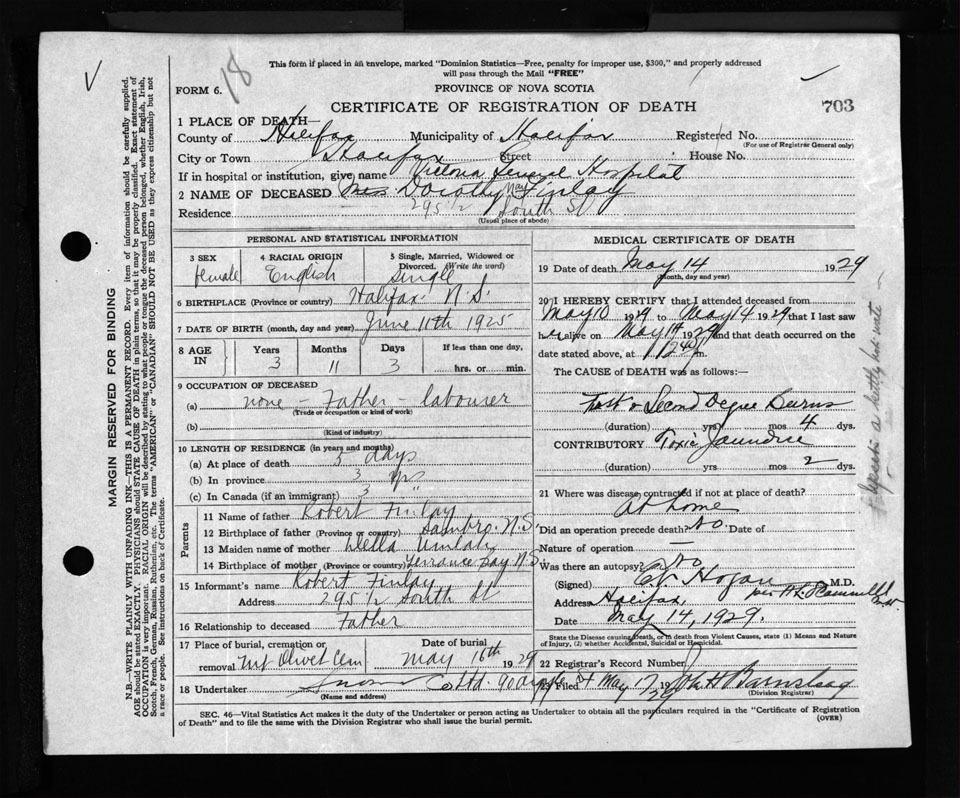 This form if placed in an envelope, marked "Dominion Statistics—Free, penalty for improper use, $300," and properly addressed
will pass through the Mail "FREE"
18
FORM 6.
PROVINCE OF NOVA SCOTIA
CERTIFICATE OF REGISTRATION OF DEATH
703
1 PLACE OF DEATH—
County of Halifax Municipality of Halifax Registered No.
(For use of Registrar General only)
City or Town Halifax Street House No.
If in hospital or institution, give name Victoria General Hospital
2 NAME OF DECEASED Dorothy May Finlay
Residence 295 1/2 South St
(Usual place of abode)
PERSONAL AND STATISTICAL INFORMATION
3 SEX female
4 RACIAL ORIGIN English
5 Single, Married, Widowed or Divorced. (Write the word) Single
6 BIRTHPLACE (Province or country) Halifax N.S.
7 DATE OF BIRTH (month, day and year) June 11th 1925
8 AGE IN Years 3 Months 11 Days 3 If less than one day, hrs. or min.
9 OCCUPATION OF DECEASED
(a) none - Father - labourer
(Trade or occupation or kind of work)
(b)
(Kind of industry)
10 LENGTH OF RESIDENCE (in years and months)
(a) At place of death 5 days
(b) In province 3 yrs
(c) In Canada (if an immigrant) 3 "
Parents
11 Name of father Robert Finlay
12 Birthplace of father (Province or country) Sambro. N.S.
13 Maiden name of mother Della Umlah
14 Birthplace of mother (Province or country) Terrance Bay N.S.
15 Informant's name Robert Finlay
Address 295 1/2 South St
16 Relationship to deceased Father
17 Place of burial, cremation or removal Mt Olivet Cem Date of burial May 16th 1929
18 Undertaker Snow Co Ltd. 90 Argyle St
(Name and address)
MEDICAL CERTIFICATE OF DEATH
19 Date of death May 14 1929
(Month, day and year)
20 I HEREBY CERTIFY that I attended deceased from
May 10 1929 to May 14 1929 that I last saw
her alive on May 14 1929 and that death occurred on the
date stated above, at m.
The CAUSE of DEATH was as follows:—
First & Second Degree Burns
(duration) yrs mos 4 dys.
CONTRIBUTORY Toxic Jaundice
(duration) yrs mos 2 dys.
21 Where was disease contracted if not at place of death?
At home
Did an operation precede death? No. Date of
Nature of operation —
Was there an autopsy? No
(Signed) Hogan M.D.
Address Halifax,
Date May 14, 1929.
State the Disease causing Death, or in death from Violent Causes, state (1) Means and Nature
of Injury, (2) whether Accidental, Suicidal or Homicidal.
22 Registrar's Record Number
23 Filed May 17 1929
(Division Registrar)
SEC. 46—Vital Statistics Act makes it the duty of the Undertaker or person acting as Undertaker to obtain all the particulars required in the "Certificate of Registration
of Death" and to file the same with the Division Registrar who shall issue the burial permit.
(OVER)
MARGIN RESERVED FOR BINDING
N.B.—WRITE PLAINLY WITH UNFADING INK—THIS IS A PERMANENT RECORD. Every item of information should be carefully supplied.
AGE should be stated EXACTLY. PHYSICIANS should STATE CAUSE OF DEATH in plain terms, so that it may be properly classified. Exact statement of
OCCUPATION is very important. RACIAL ORIGIN will be described by stating to what people or tongue the deceased person belonged, whether English, Irish,
Scotch, French, German, Russian, Ruthenian, etc. The terms "AMERICAN" or "CANADIAN" SHOULD NOT BE USED as they express citizenship but not
a race or people. See instructions on back of Certificate.